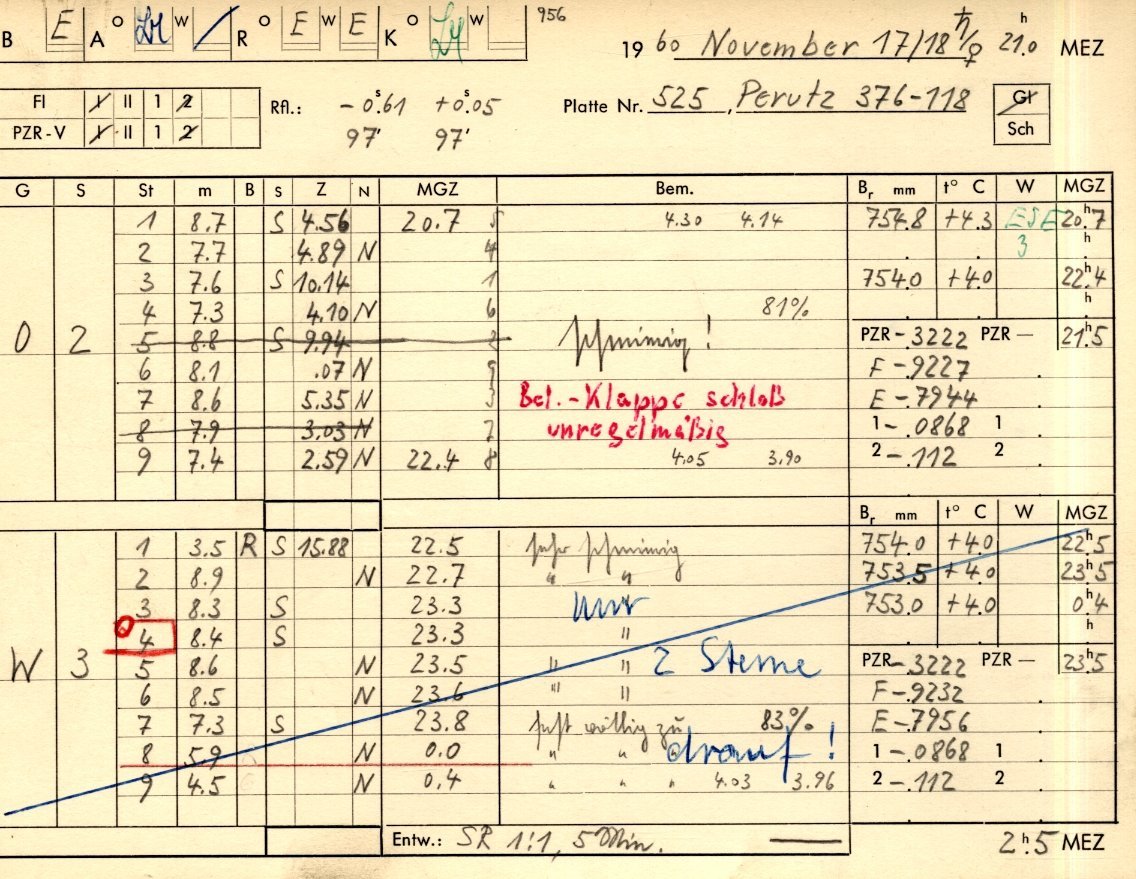 B E A o W R o E W E K o W 956
19 60 November 17/18 ♄/♀ 21.0 h MEZ
FI I II 1 2 Rfl.: -0.61 s +0.05 s Platte Nr. 525, Perutz 376-118 Gl
PZR-V I II 1 2 97' 97' Sch
G S St m B S Z N MGZ Bem. Br mm t° C W MGZ
1 8.7 S 4.56 20.7 5 4.30 4.14 754.8 +4.3 ESE 20.7 h
2 7.7 4.89 N 4 3 h
3 7.6 S 10.14 1 754.0 +4.0 22.4 h
4 7.3 4.10 N 6 81% h
O 2 5 8.8 S 9.94 2 schmierig! PZR -.3222 PZR — 21.5
6 8.1 .07 N 9 F -.9227
7 8.6 5.35 N 3 Bel.-Klappe schloß E -.7944
8 7.9 3.03 N 7 unregelmäßig 1 -.0868 1
9 7.4 2.59 N 22.4 8 4.05 3.90 2 -.112 2
Br mm t° C W MGZ
1 3.5 R S 15.88 22.5 sehr schmierig 754.0 +4.0 22.5 h
2 8.9 N 22.7 " " 753.5 +4.0 23.5 h
3 8.3 S 23.3 nur 753.0 +4.0 0.4 h
4 8.4 S 23.3 " h
W 3 5 8.6 N 23.5 " " 2 Sterne PZR -.3222 PZR — 23.5 h
6 8.5 N 23.6 " " F -.9232
7 7.3 S 23.8 fast völlig zu 83% E -.7956
8 5.9 N 0.0 " " drauf! 1 -.0868 1
9 4.5 N 0.4 " " " 4.03 3.96 2 -.112 2
Entw.: SR 1:1, 5 Min. 2.5 h MEZ